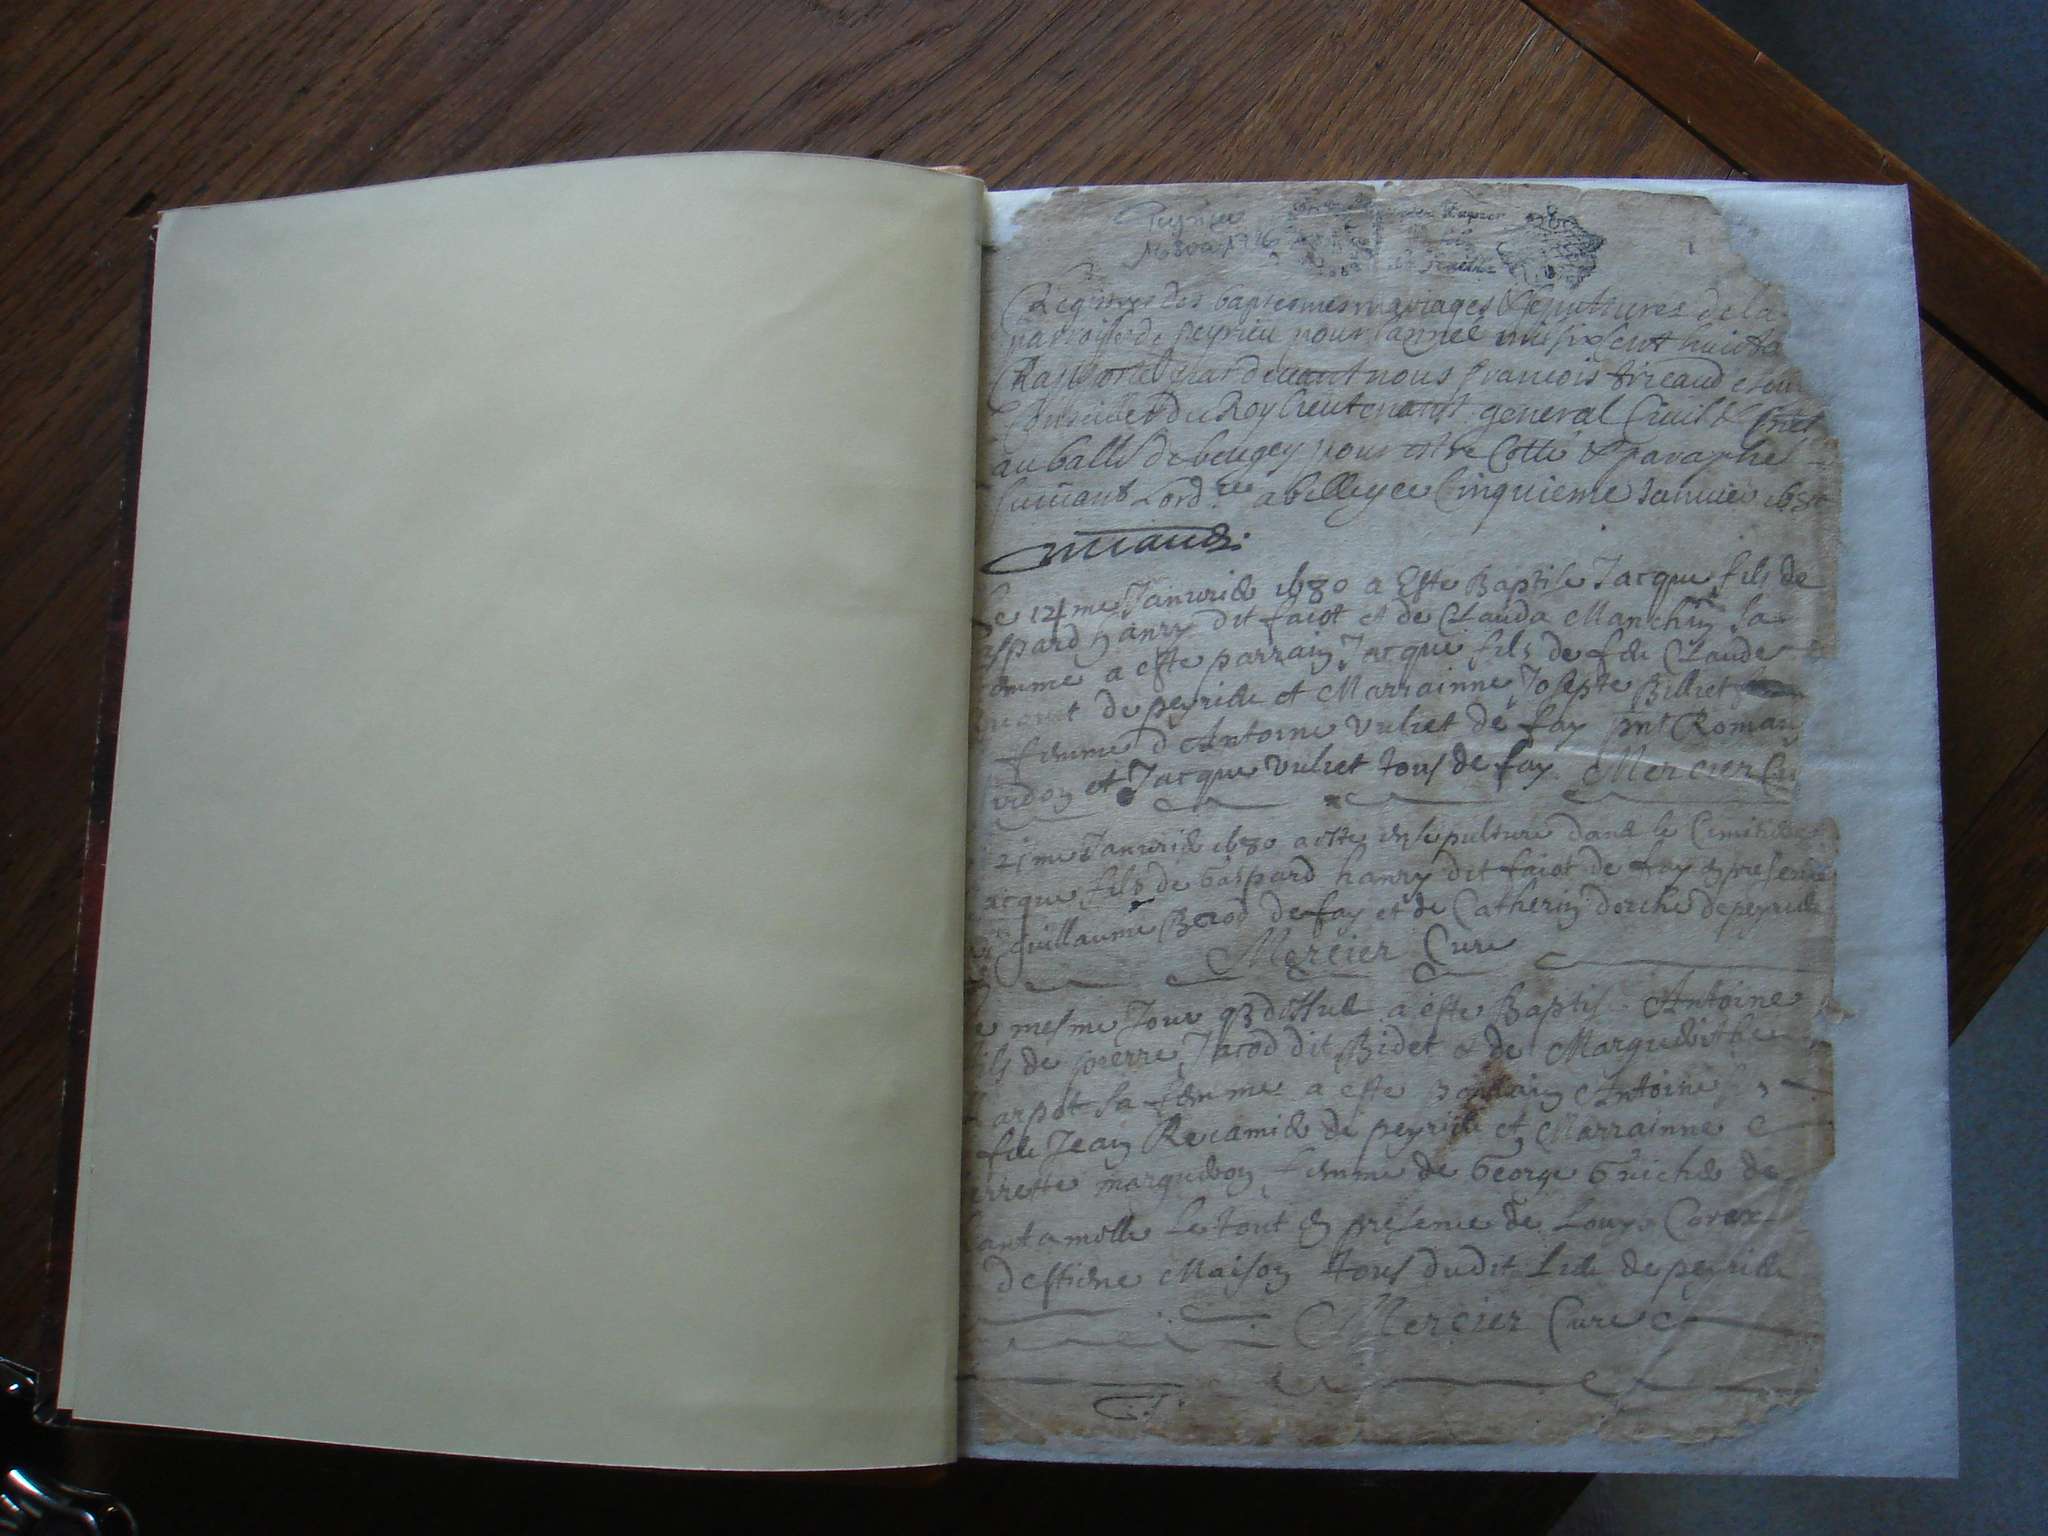 Peyrieu
1680 a 1716
Registre des baptesmes mariages & sepultures de la
parroisse de peyrieu pour l'année mil six cent huicta
Rapporté par devant nous francois
Conseiller du Roy lieutenant general Civil &
au balli de beugey pour estre Cotté & paraphé
suivant Lord.ce a belley ce Cinquieme Janvier 168
Le 14me Janvrier 1680 a Esté Baptise Jacque fils de
aspard hanry dit faiot et de Clauda Manchin sa
emme a este parrain Jacque fils de feu Claude
de peyrieu et Marrainne Josepte Billiet
femme d Antoine vuliet de fay pnt Roman
et Jacque vuliet tous de fay. Mercier Cu
21me Janvrier 1680 a este ensepulture dans le Cimitiere
acque fils de Gaspard hanry dit faiot de fay en presence
Guillaume Berod de fay et de Catherin dorche de peyrieu
Mercier Cure
e mesme Jour que dessus a este Baptise Antoine
ils de pierre Jacod dit Bidet & de Marguerithe
arpot sa femme a este parrain Antoine
feu Jean Recamier de peyrieu et Marrainne
errette margueron femme de George Guicher de
le tout en presence de Louys
d estiene Maison tous dudit Lieu de peyrieu
Mercier Cure